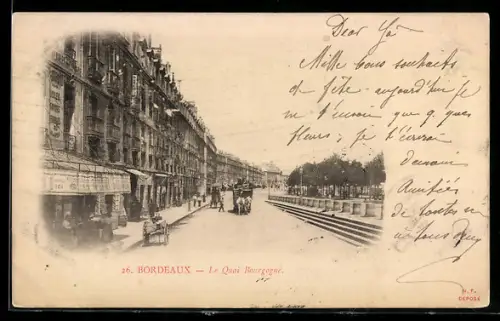 Dear
Mille bons souhaits
de fête. aujourd'hui je
ne t'écris que q. ques
fleurs; je t'écrirai
demain
Amitiés
de toutes
à tous
26. BORDEAUX. — Le Quai Bourgogne.
N. F.
DÉPOSÉ